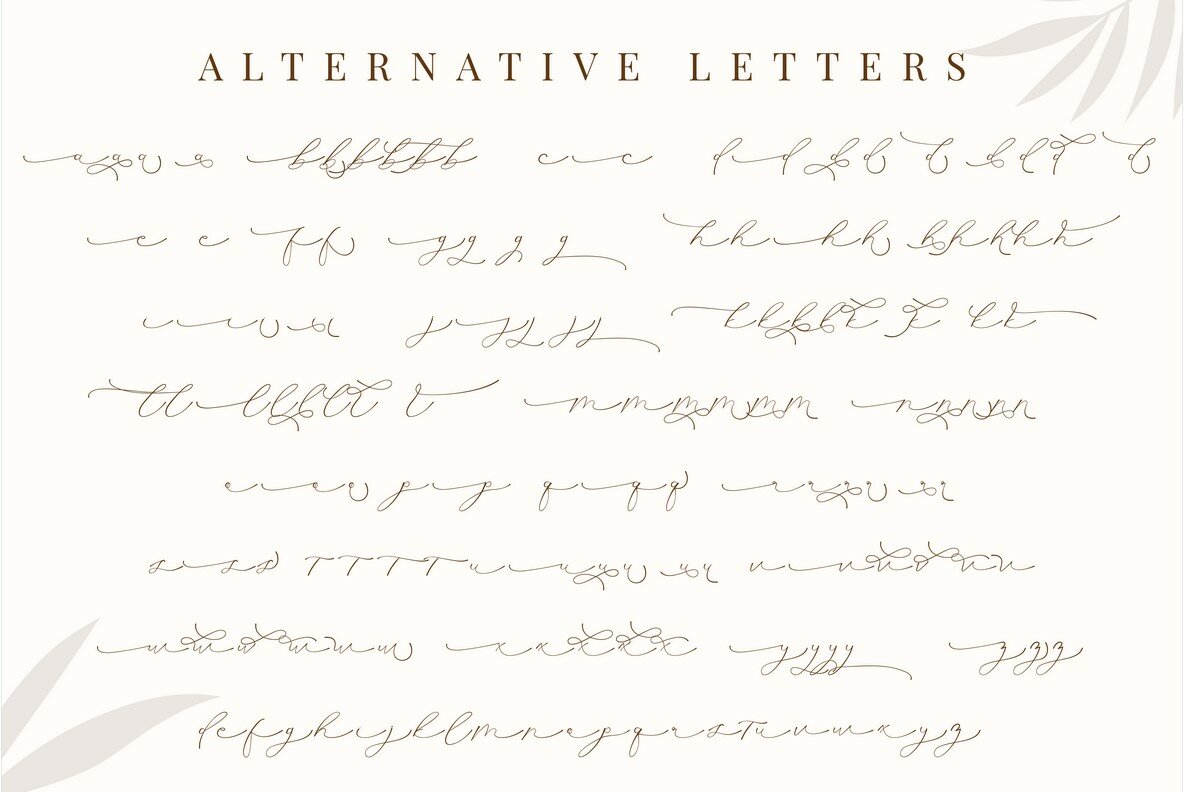 ALTERNATIVE LETTERS
a a a a b b b b b b c c d d d d d d d d d
e e f f g g g g h h h h h h h h h
i i i i i j j j j j k k k k k k k k
l l l l l l l l l m m m m m m n n n n n
o o o o p p q q q r r r r r r
s s s s T T T T u u u u u u u v v v v v v
w w w w w w x x x x x y y y y z z z
d e f g h i j k l m n o p q r s T u v w x y z